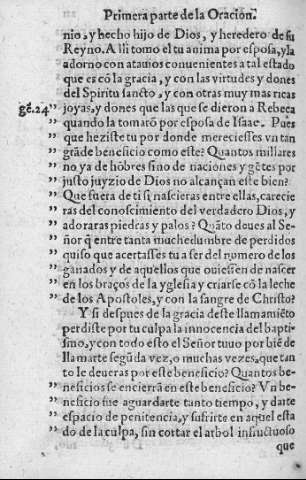 Primera parte de la Oracion.
nio, y hecho hijo de Dios, y heredero de su
Reyno. Alli tomo el tu anima por esposa, y la
adorno con atauios conuenientes a tal estado
que es cõ la gracia, y con las virtudes y dones
del Spiritu sancto, y con otras muy mas ricas
gẽ. 24 ,, joyas, y dones que las que se dieron a Rebeca
,, quando la tomarõ por esposa de Isaac. Pues
,, que heziste tu por donde mereciesses vn tan
,, grãde beneficio como este? Quantos millares
,, no ya de hõbres sino de naciones y gẽtes por
,, justo juyzio de Dios no alcançan este bien?
,, Que fuera de ti si nascieras entre ellas, carecie
,, ras del conoscimiento del verdadero Dios, y
,, adoraras piedras y palos? Quãto deues al Se-
,, ñor q̃ entre tanta muchedumbre de perdidos
,, quiso que acertasses tu a ser del numero de los
,, ganados y de aquellos que ouiessen de nascer
,, en los braços de la yglesia y criarse cõ la leche
,, de los Apostoles, y con la sangre de Christo?
,, Y si despues de la gracia deste llamamiẽto
,, perdiste por tu culpa la innocencia del bapti-
,, smo, y con todo esto el Señor tuuo por biẽ de
,, llamarte segũda vez, o muchas vezes, que tan
,, to le deueras por este beneficio? Quantos be-
,, neficios se encierrã en este beneficio? Vn be-
,, neficio fue aguardarte tanto tiempo, y darte
,, espacio de penitencia, y sufrirte en aquel esta
,, do de la culpa, sin cortar el arbol infructuoso
que